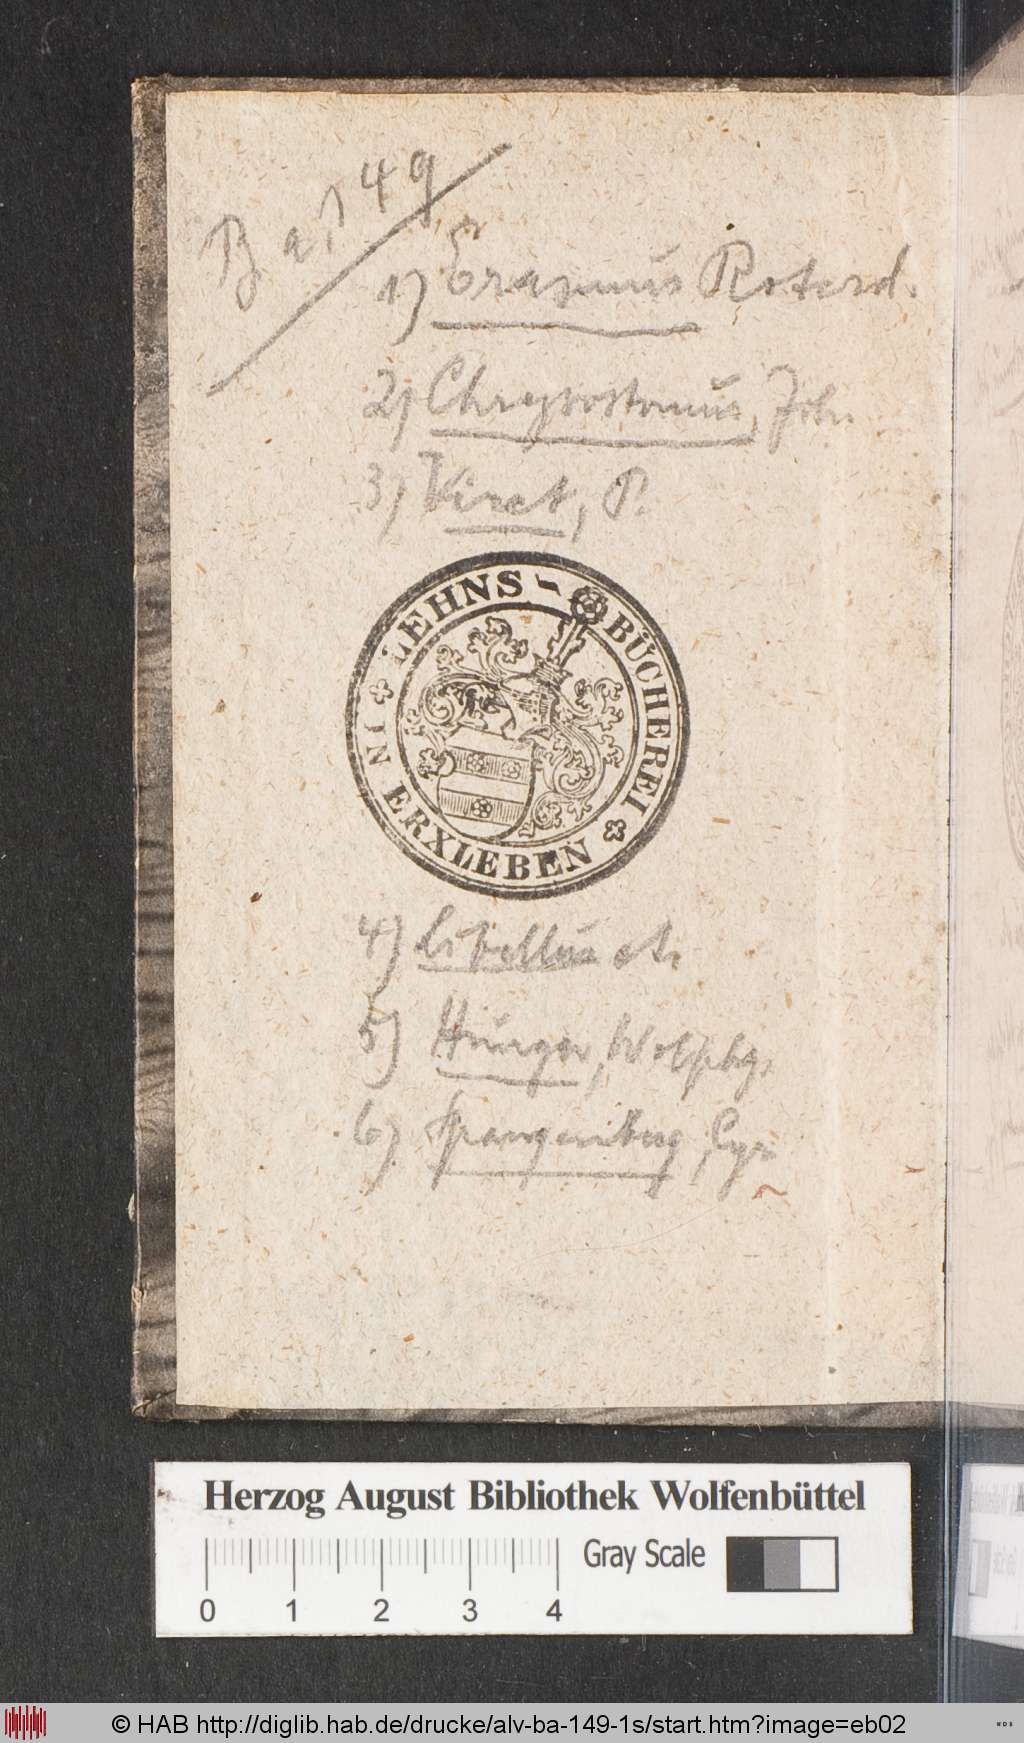 Ba 149
1) Erasmus Roterd.
2) Chrysostomus, Joh.
3) Viret, P.
LEHNS - BÜCHEREI
IN ERXLEBEN
4) Libellus et.
5) Hunger, Wolfg.
6) Spangenberg, Cyr
Herzog August Bibliothek Wolfenbüttel
Gray Scale
0 1 2 3 4
© HAB http://diglib.hab.de/drucke/alv-ba-149-1s/start.htm?image=eb02